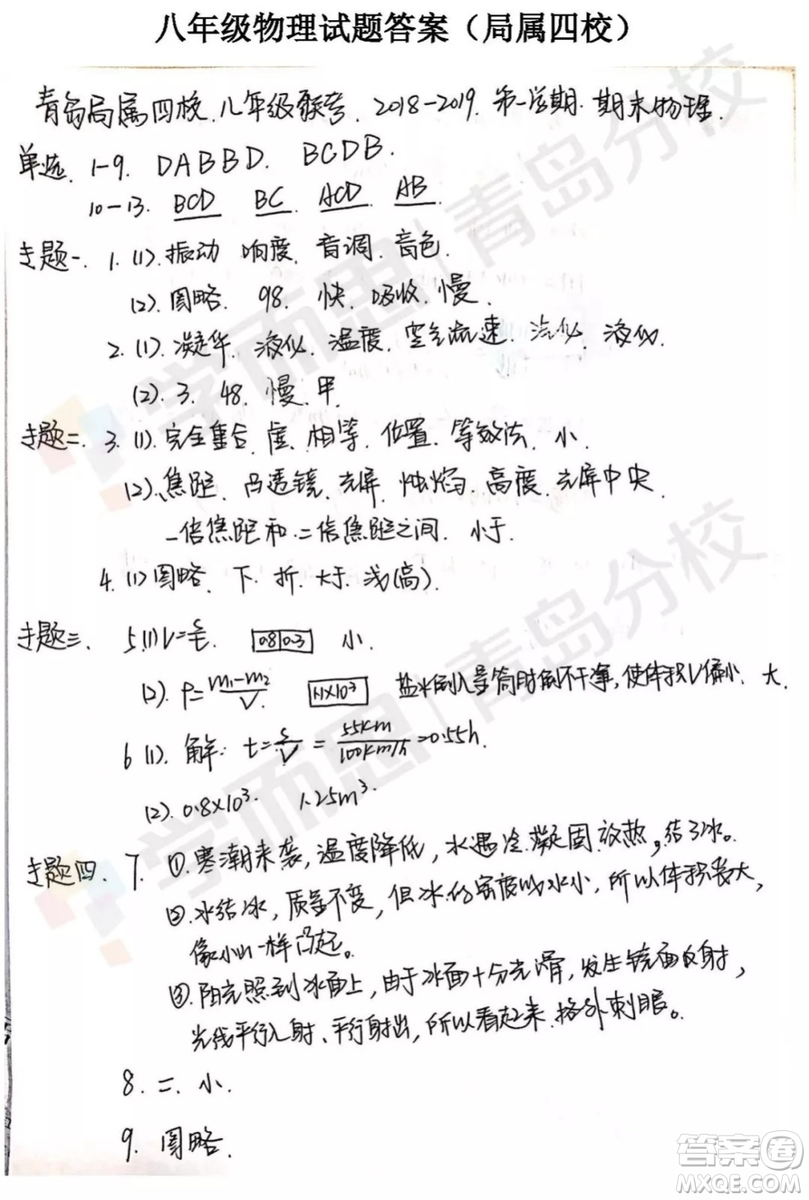 八年级物理试题答案（局属四校）
青岛局属四校.八年级联考. 2018-2019. 第一学期.期末物理.
单选. 1-9. DABBD. BCDB.
10-13. BCD BC ACD AB
专题一. 1. (1). 振动 响度. 音调. 音色.
(2). 图略. 98. 快. 吸收. 慢.
2. (1). 凝华. 液化. 温度. 空气流速. 汽化. 液化.
(2). 3. 48. 慢. 甲.
专题二. 3. (1). 完全重合. 虚. 相等. 位置. 等效法. 小.
(2). 焦距. 凸透镜. 光屏. 烛焰. 高度. 光屏中央.
一倍焦距和二倍焦距之间. 小于.
4. (1) 图略. 下. 折. 大于. 浅(高).
专题三. 5.(1) V=s/t. 0.8 0.3 小.
(2). ρ=(m1-m2)/V. 1.1×10³ 盐水倒入量筒时倒不干净, 使体积V偏小. 大.
6 (1). 解: t=s/V=55km/100km/h=0.55h.
(2). 0.8×10³. 1.25m³.
专题四. 7. ①. 寒潮来袭, 温度降低, 水遇冷凝固放热, 结了冰。
②. 水结冰, 质量不变, 但冰的密度比水小, 所以体积变大,
像小山一样凸起。
③. 阳光照到冰面上, 由于冰面十分光滑, 发生镜面反射,
光线平行入射、平行射出, 所以看起来格外刺眼。
8. 二. 小.
9. 图略.
学而思|青岛分校
学而思|青岛分校
答案圈
MXQE.COM